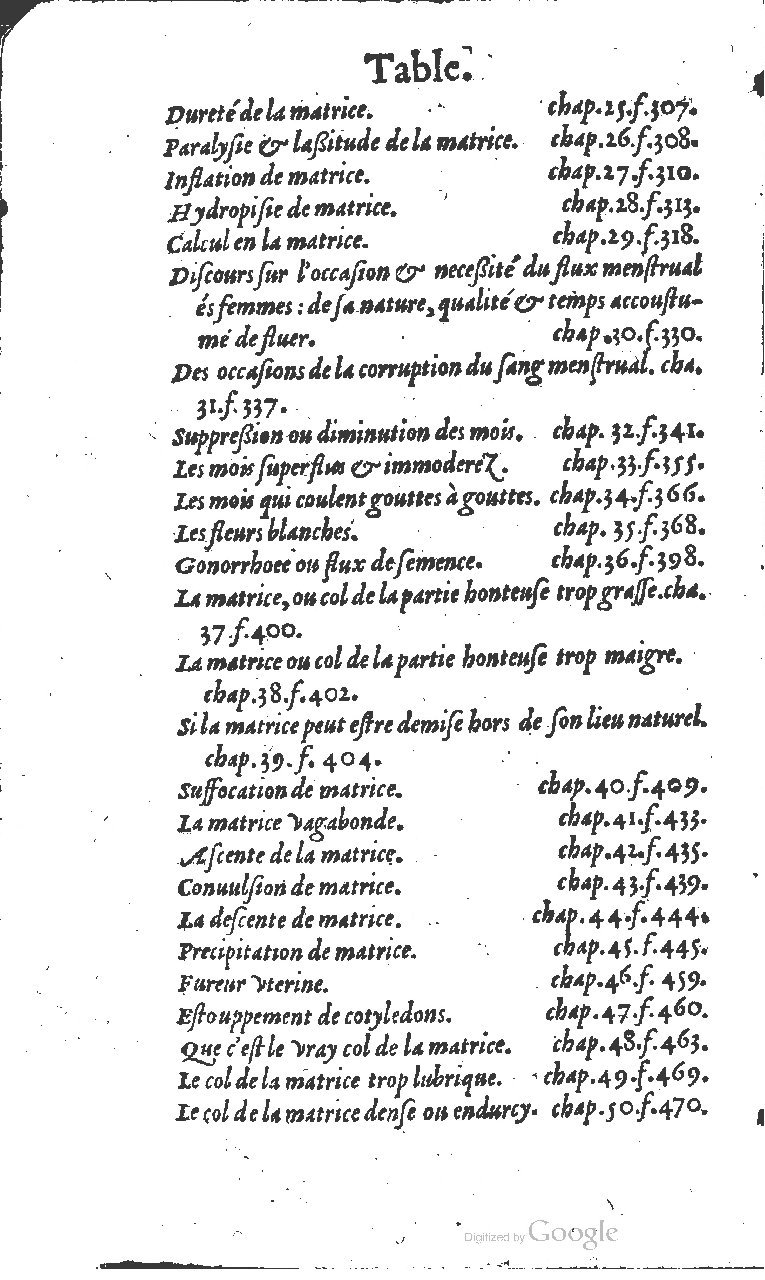 Table.
Dureté de la matrice. chap.25.f.307.
Paralysie & laßitude de la matrice. chap.26.f.308.
Inflation de matrice. chap.27.f.310.
Hydropisie de matrice. chap.28.f.313.
Calcul en la matrice. chap.29.f.318.
Diſcours ſur l'occaſion & neceßité du flux menſtrual
és femmes : de ſa nature, qualité & temps accouſtu-
mé de fluer. chap.30.f.330.
Des occaſions de la corruption du ſang menſtrual. cha.
31.f.337.
Suppreßion ou diminution des mois. chap. 32.f.341.
Les mois ſuperflus & immoderez. chap.33.f.355.
Les mois qui coulent gouttes à gouttes. chap.34.f.366.
Les fleurs blanches. chap. 35.f.368.
Gonorrhoee ou flux de ſemence. chap.36.f.398.
La matrice, ou col de la partie honteuſe trop graſſe. cha.
37.f.400.
La matrice ou col de la partie honteuſe trop maigre.
chap.38.f.402.
Si la matrice peut eſtre demiſe hors de ſon lieu naturel.
chap.39.f. 404.
Suffocation de matrice. chap.40.f.409.
La matrice vagabonde. chap.41.f.433.
Aſcente de la matrice. chap.42.f.435.
Conuulſion de matrice. chap.43.f.439.
La deſcente de matrice. chap.44.f.444.
Precipitation de matrice. chap.45.f.445.
Fureur vterine. chap.46.f. 459.
Eſtouppement de cotyledons. chap.47.f.460.
Que c'eſt le vray col de la matrice. chap.48.f.463.
Le col de la matrice trop lubrique. chap.49.f.469.
Le col de la matrice denſe ou endurcy. chap.50.f.470.
Digitized by Google